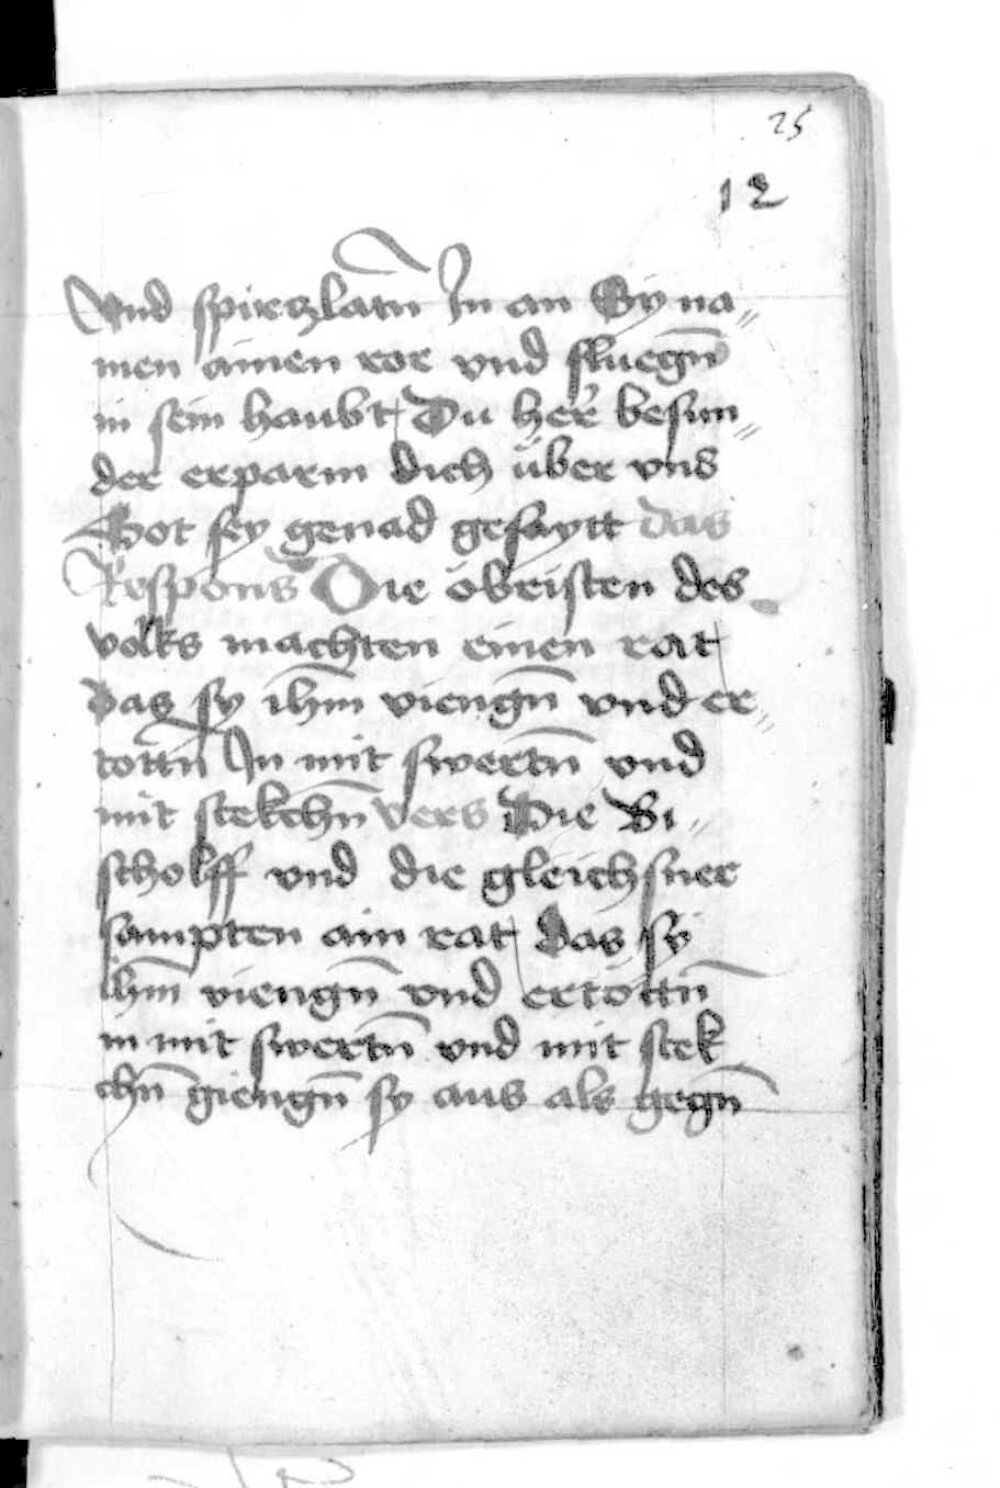 25
12
Vnd spirczlatn̄ In an Sy na〃
men ainen ror vnd sluegn̄
in sein haubt Du her besun〃
der erparm dich über vns
Got sey genad gesaytt das
Respons Die öbristen des
volks machten einen rat
das sy ihm̄ viengn̄ vnd er〃
tottn̄ In mit swertn̄ vnd
mit stekchn̄ vers Die Bi〃
scholff vnd die gleichsner
sampten ain rat das sy
ihm̄ viengn̄ vnd ertöttn̄
in mit swertn̄ vnd mit stek
chn̄ giengn̄ sy aus als gegn̄